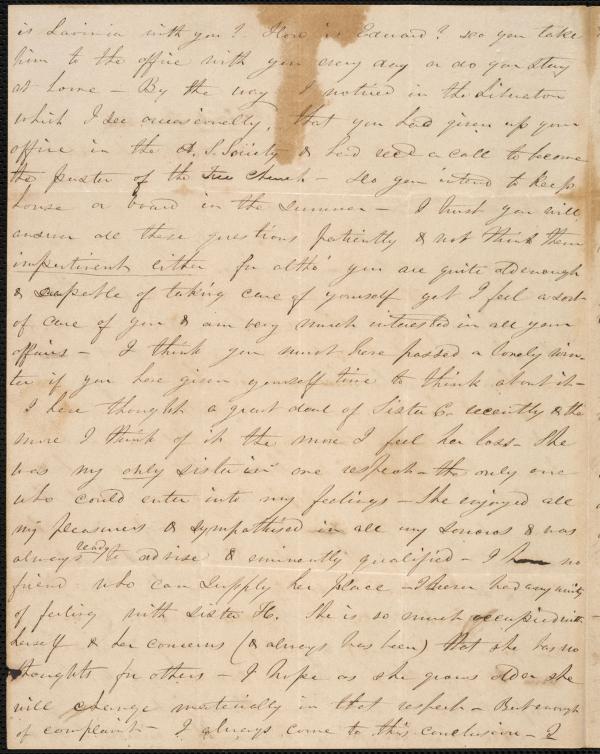 is Lavinia with you? How is Edward? do you take
him to the office with you every day or do you stay
at home - By the way I noticed in the Liberator
which I see occasionally, that you had given up your
office in the A. S. Society & had recd a call to become
the pastor of the Free Church - do you intend to keep
house or board in the summer - I trust you will
answer all these questions patiently & not think them
impertinent either for altho' you are quite old enough
& capable of taking care of yourself yet I feel a sort
of care of you & am very much interested in all your
affairs - I think you must have passed a lonely win-
ter if you have given yourself time to think about it -
I have thought a great deal of Sister C. recently & the
more I think of it the more I feel her loss - She
was my only sister in one respect - the only one
who could enter into my feelings - She enjoyed all
my pleasures & sympathised in all my sorrows & was
always ready to advise & eminently qualified - I have no
friend who can supply her place - I never had any unity
of feeling with sister H. She is so much occupied with
herself & her concerns (& always has been) that she has no
thoughts for others - I hope as she grows older she
will change materially in that respect - But enough
of complaint - I always come to this conclusion -